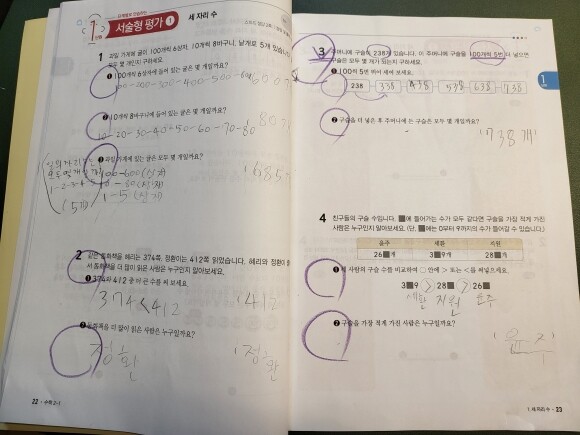 1단원
서술형 평가 1
세 자리 수
1 과일 가게에 귤이 100개씩 6상자, 10개씩 8바구니, 낱개로 5개 있습니다.
모두 몇 개인지 구하세요.
❶ 100개씩 6상자에 들어 있는 귤은 몇 개일까요?
100-200-300-400-500-600
600개
❷ 10개씩 8바구니에 들어 있는 귤은 몇 개일까요?
10-20-30-40-50-60-70-80
80개
❸ 과일 가게에 있는 귤은 모두 몇 개일까요?
1-2-3-4-5
(5개)
100-600(상자)
1-5
685개
2 같은 동화책을 혜리는 374쪽, 정환이는 412쪽 읽었습니다. 혜리와 정환이 중
서 동화책을 더 많이 읽은 사람은 누구인지 알아보세요.
❶ 374와 412 중 더 큰 수를 써 보세요.
374<412
412
❷ 동화책을 더 많이 읽은 사람은 누구일까요?
정환
정환
22 · 수학 2-1
3 주머니에 구슬이 238개 있습니다. 이 주머니에 구슬을 100개씩 5번 더 넣으면
구슬은 모두 몇 개가 되는지 구하세요.
❶ 100씩 5번 뛰어 세어 보세요.
238 338 438 538 638 738
❷ 구슬을 더 넣은 후 주머니에 든 구슬은 모두 몇 개일까요?
738개
1
4 친구들의 구슬 수입니다. ■에 들어가는 수가 모두 같다면 구슬을 가장 적게 가진
사람은 누구인지 알아보세요. (단, ■에는 0부터 9까지의 수가 들어갈 수 있습니다.)
윤주 세환 지원
26■개 3■9개 28■개
❶ 세 사람의 구슬 수를 비교하여 ○ 안에 > 또는 <를 써넣으세요.
3■9 > 28■ > 26■
세환 지원 윤주
❷ 구슬을 가장 적게 가진 사람은 누구일까요?
윤주
1. 세 자리 수 · 23